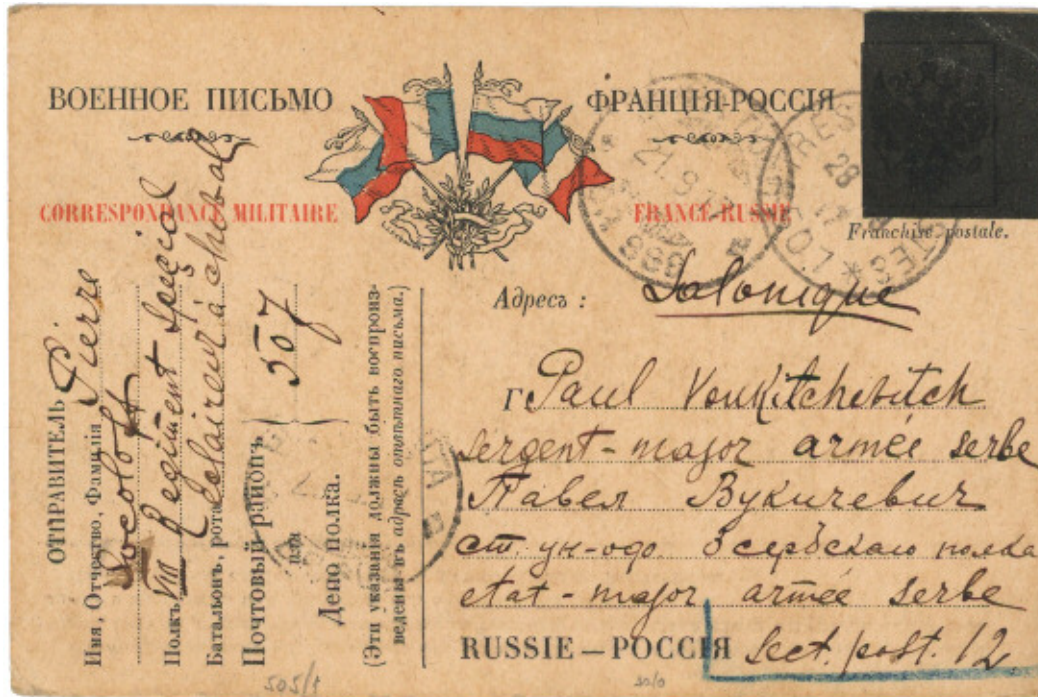 ВОЕННОЕ ПИСЬМО
ФРАНЦІЯ-РОССІЯ
CORRESPONDANCE MILITAIRE
FRANCE-RUSSIE
Franchise postale.
Адресъ :
Salonique
Г. Paul Voukitchevitch
sergent-major armée serbe
Павел Вукичевич
ст. ун-офо. 3 сербскаго полка
état-major armée serbe
RUSSIE — РОССІЯ
Sect. post. 12
ОТПРАВИТЕЛЬ
Имя, Отчество, Фамилія
Pierre
Socoloff
Полкъ
Regiment special
Батальонъ, рота
eclaireur à cheval
Почтовый районъ
или
507
Депо полка.
(Эти указанія должны быть воспроиз-
ведены въ адресѣ отвѣтнаго письма.)
21.9
999
28
505/1
30/0